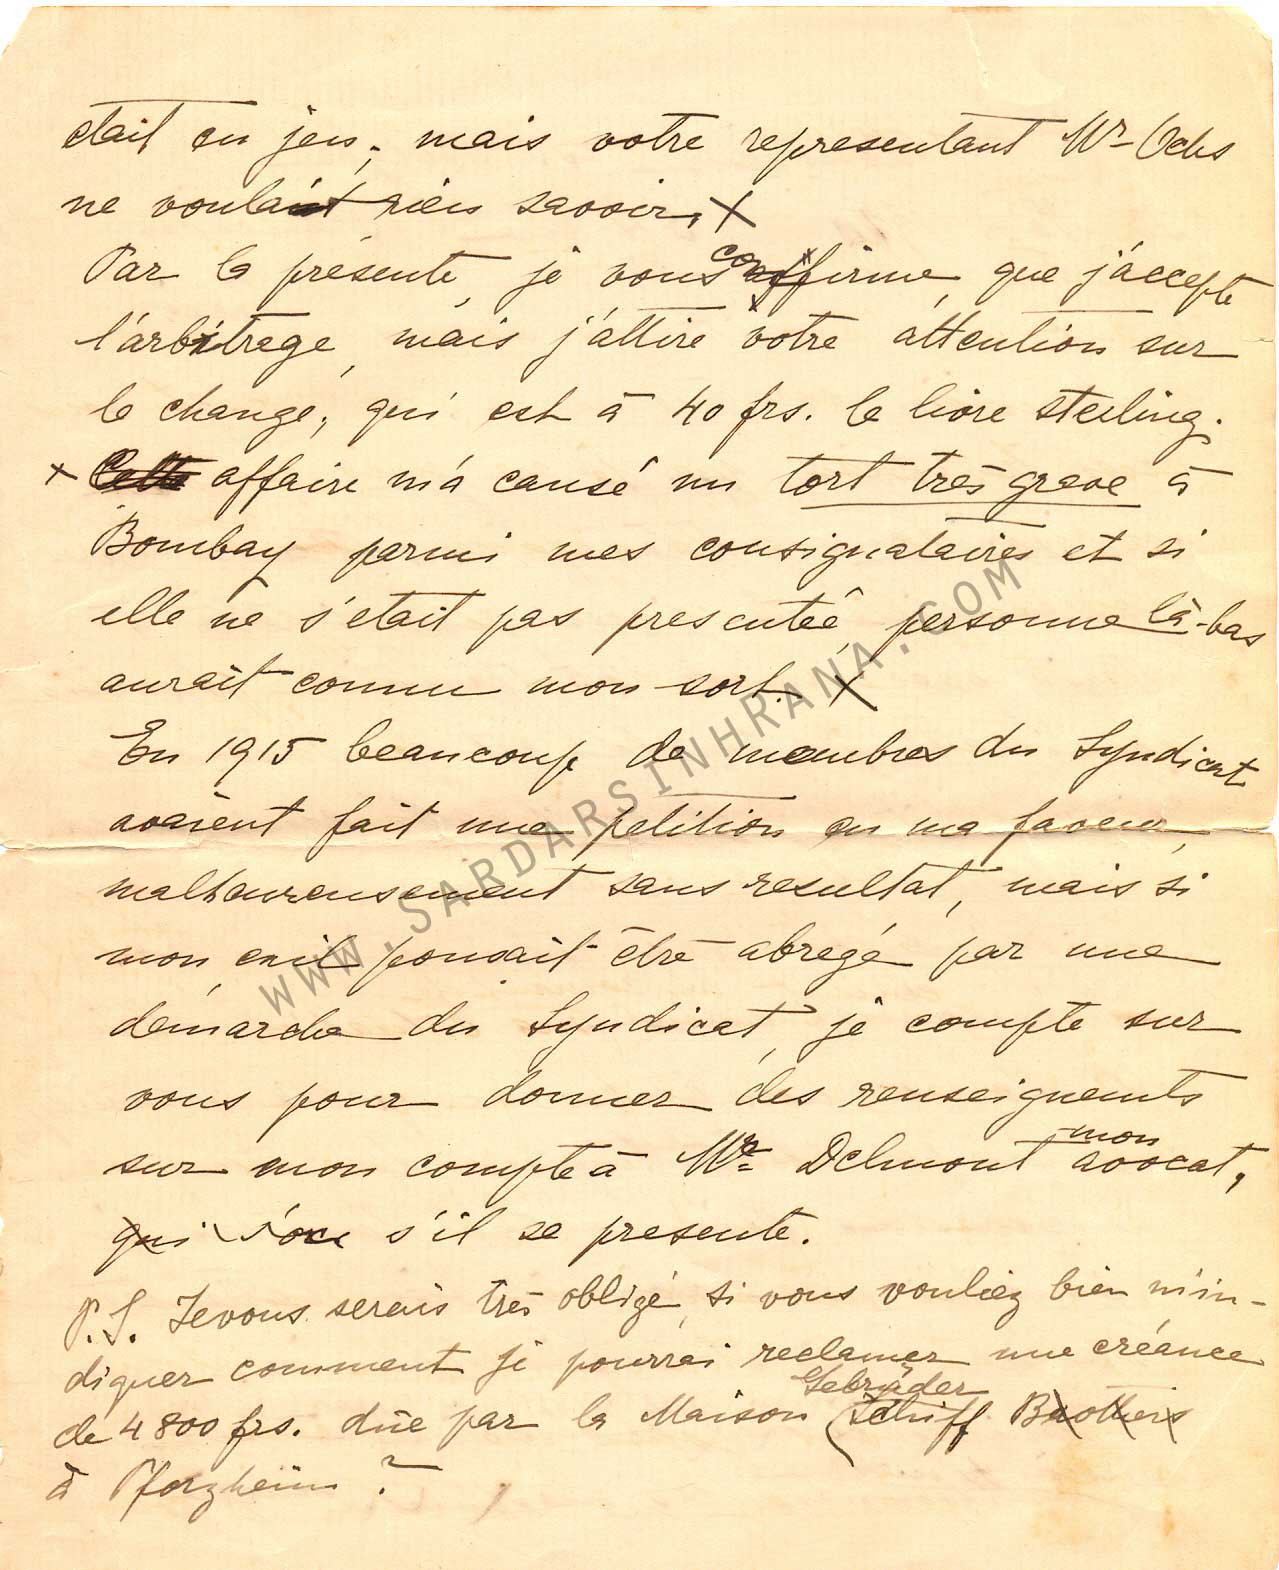 etait en jeu, mais votre representant Mr Ochs
ne voulait rien savoir, X
Par la présente, je vous confirme, que j'accepte
l'arbitrage, mais j'attire votre attention sur
le change, qui est à 40 frs. le livre sterling.
x Cette affaire m'a causé un tort très grave à
Bombay parmi mes consignataires et si
elle ne s'etait pas presentée personne là-bas
aurait connu mon sort. X
En 1915 beaucoup de membres du Syndicat
avaient fait une petition en ma faveur,
malheureusement sans resultat, mais si
mon exil pouvait être abregé par une
démarche du Syndicat, je compte sur
vous pour donner des renseignements
sur mon compte à Mr Delmont mon avocat,
qui s'il se presente.
P.S. Je vous serais très obligé, si vous vouliez bien m'in-
diquer comment je pourrai reclamer une créance
de 4800 frs. dûe par la Maison Gebrüder Schiff Brothers
à Pforzheim ?
WWW.SARDARSINHRANA.COM